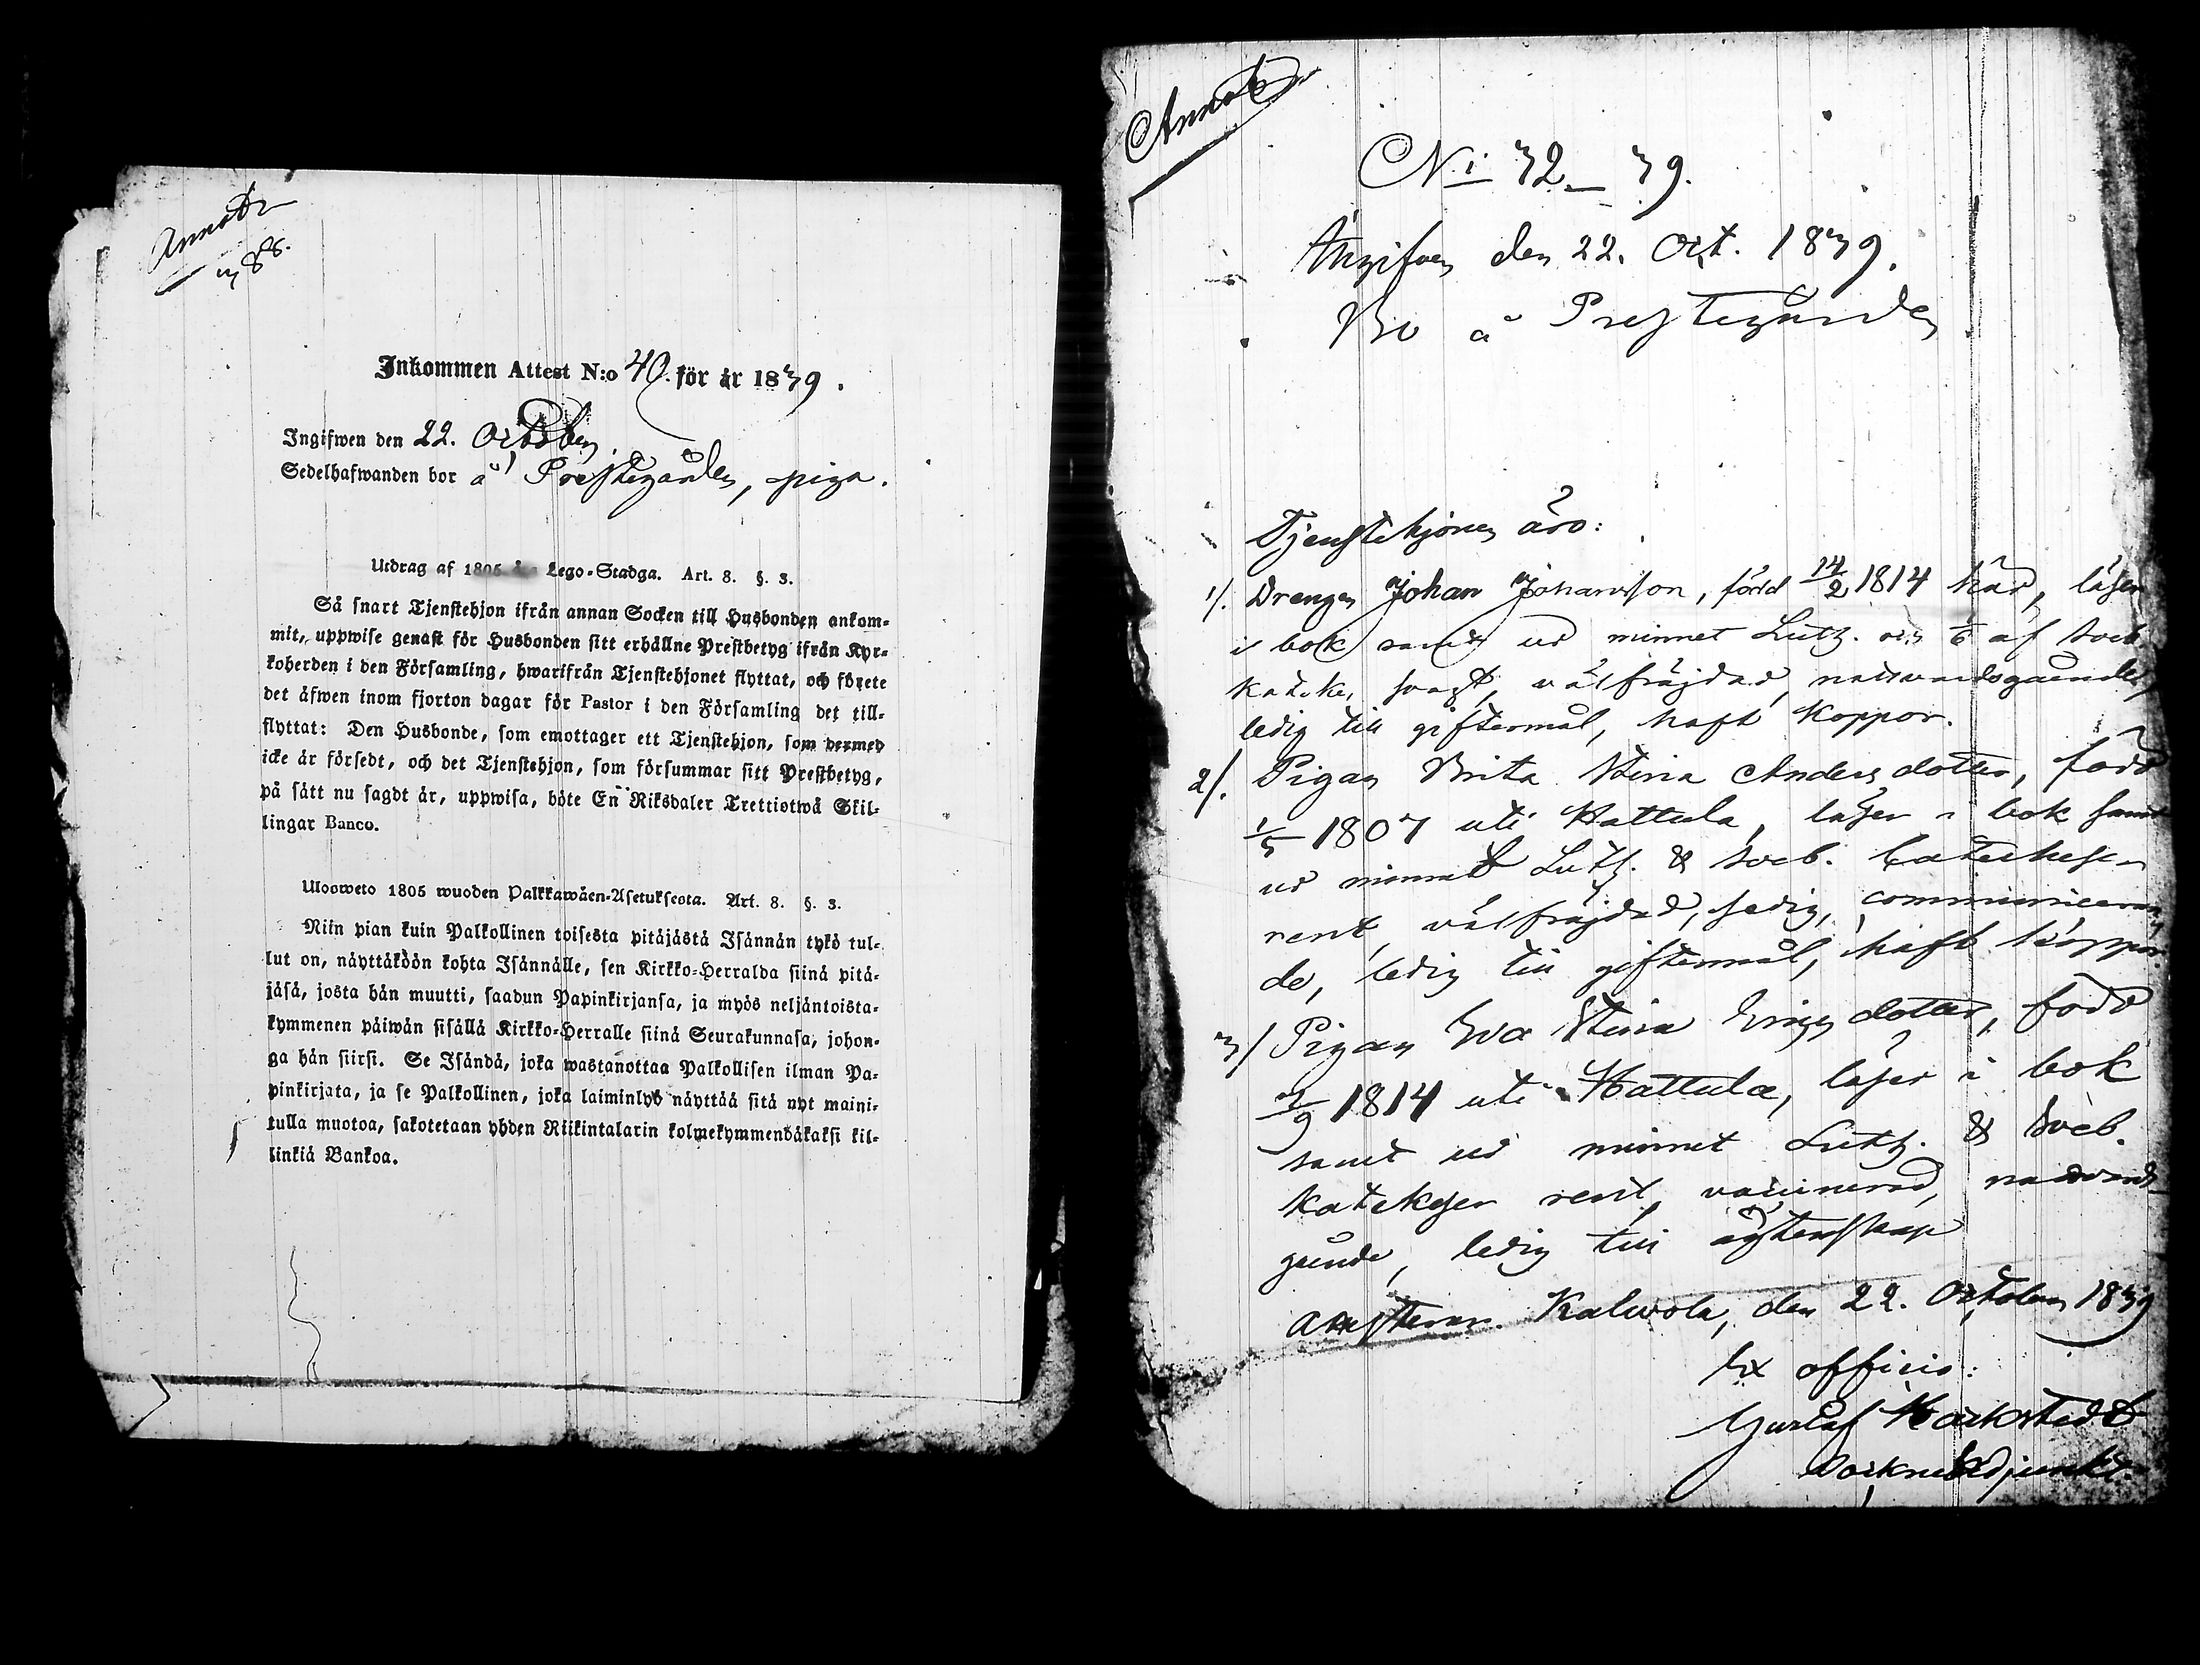 Annot.
388.
Inkommen Attest N:o 40. för år 1839.
Ingifwen den 22. October
Sedelhafwanden bor å Prestegården, piga.
Utdrag af 1805 års Lego-Stadga. Art. 8. §. 3.
Så snart Tjenstehjon ifrån annan Socken till Husbonden ankom-
mit, uppwise genast för Husbonden sitt erhållne Prestbetyg ifrån Kyr-
koherden i den Församling, hwarifrån Tjenstehjonet flyttat, och förete
det äfwen inom fjorton dagar för Pastor i den Församling det till-
flyttat: Den Husbonde, som emottager ett Tjenstehjon, som dermed
icke är försedt, och det Tjenstehjon, som försummar sitt Prestbetyg,
på sätt nu sagdt är, uppwisa, böte En Riksdaler Trettiotwå Skil-
lingar Banco.
Uloosweto 1805 wuoden Palkkawäen-Asetuksesta. Art. 8. §. 3.
Niin pian kuin Palkollinen toisesta pitäjästä Isännän tykö tul-
lut on, näyttäköön kohta Isännälle, sen Kirkko-Herralda siinä pitä-
jäsä, josta hän muutti, saadun Papinkirjansa, ja myös neljäntoista-
kymmenen päiwän sisällä Kirkko-Herralle siinä Seurakunnasa, johon-
ga hän siirsi. Se Isändä, joka wastanottaa Palkollisen ilman Pa-
pinkirjata, ja se Palkollinen, joka laiminlyö näyttää sitä nyt maini-
tulla muotoa, sakotetaan yhden Riikintalarin kolmekymmendäkaksi kil-
linkiä Bankoa.
Annot.
N:i 32 – 39.
Ingifven den 22. Oct. 1839.
Bo å Prestegården
Tjenstehjonen äro:
1/. Drengen Johan Johansson, född 14/2 1814 här, läser
i bok samt ur minnet Luth. och af Sveb.
katekes svagt, välfräjdad, nattvardsgående,
ledig till giftermål, haft koppor.
2/. Pigan Brita Stina Andersdotter, född
1/5 1807 uti Hattula, läser i bok samt
ur minnet Luth. & Sveb. Catecheser
rent, välfräjdad, communiceran-
de, ledig till giftermål, haft koppor.
3/ Pigan Eva Stina Ericsdotter, född
3/9 1814 uti Hattula, läser i bok
samt ur minnet Luth. & Sveb.
katekeser rent, vaccinerad, nattvards-
gående, ledig till ägtenskap
attesterar. Kalvola, den 22. October 1839
Ex officio:
Gustaf
Sockneadjunkt.